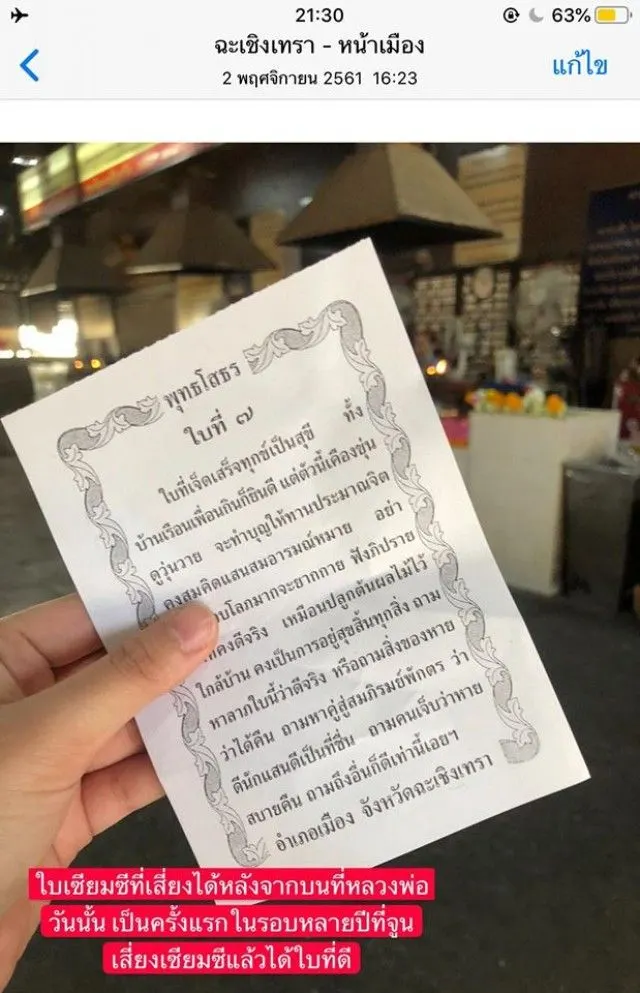 21:30
63%
ฉะเชิงเทรา - หน้าเมือง
2 พฤศจิกายน 2561 16:23
แก้ไข
พุทธโสธร
ใบที่ ๗
ใบที่เจ็ดเสร็จทุกข์เป็นสุขี ทั้ง
บ้านเรือนเพื่อนถินก็ยินดี แต่ตัวนี้เคืองขุ่น
ดูวุ่นวาย จะทำบุญให้ทานประมาณจิต
คงสมคิดแสนสมอารมณ์หมาย อย่า
บโลภมากจะยากกาย ฟังภิปราย
คงดีจริง เหมือนปลูกต้นผลไม้ไว้
ใกล้บ้าน คงเป็นการอยู่สุขสิ้นทุกสิ่ง ถาม
หาลาภใบนี้ว่าดีจริง หรือถามสิ่งของหาย
ว่าได้คืน ถามหาคู่สู่สมภิรมย์พักตร ว่า
ดีนักแสนดีเป็นที่ชื่น ถามคนเจ็บว่าหาย
สบายคืน ถามถึงอื่นก็ดีเท่านี้เอยฯ
อำเภอเมือง จังหวัดฉะเชิงเทรา
ใบเซียมซีที่เสี่ยงได้หลังจากบนที่หลวงพ่อ
วันนั้น เป็นครั้งแรกในรอบหลายปีที่จูน
เสี่ยงเซียมซีแล้วได้ใบที่ดี